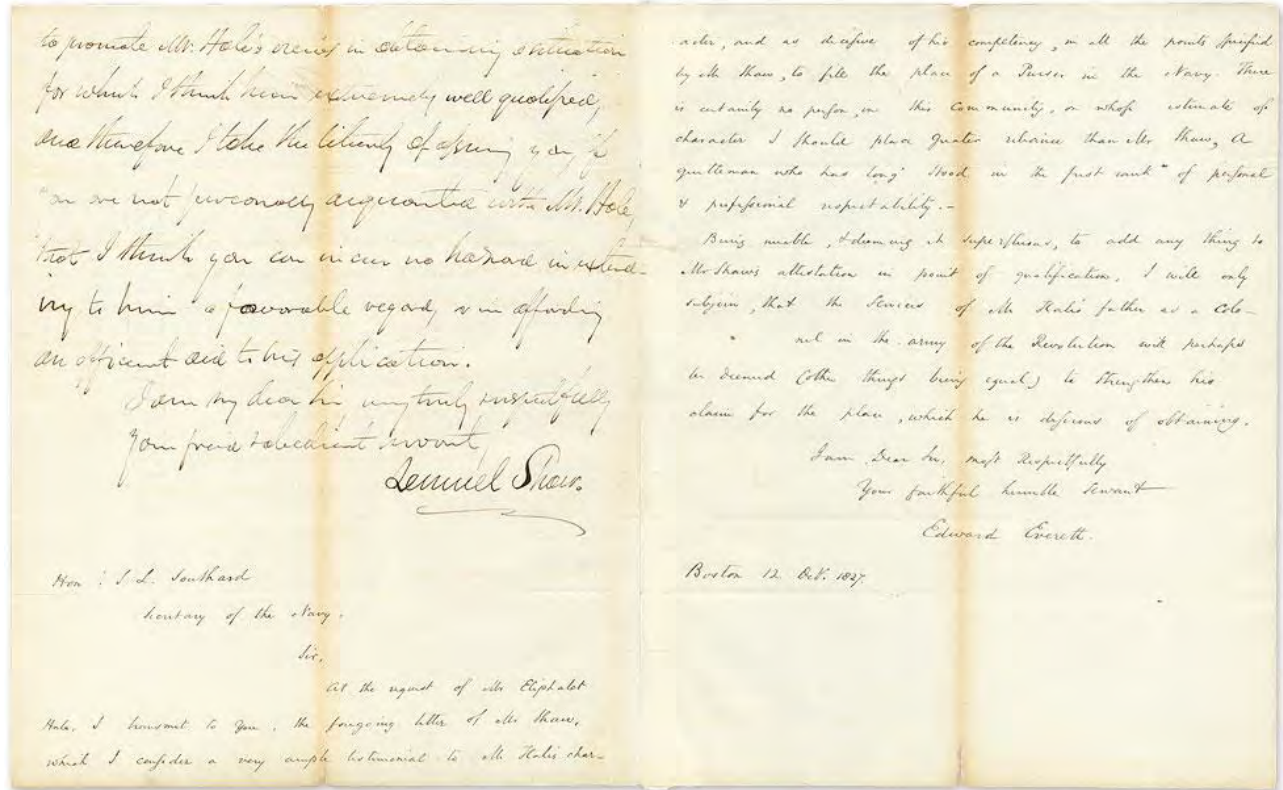 to promote Mr. Hale's views in obtaining a situation
for which I think him extremely well qualified,
and therefore I take the liberty of assuring you, if
you are not personally acquainted with Mr. Hale,
that I think you can incur no hazard in extend-
ing to him a favorable regard, or in affording
an efficient aid to his application.
I am my dear Sir very truly & respectfully
Your friend & obedient servant,
Lemuel Shaw.
Hon: S. L. Southard
Secretary of the Navy.
Sir,
At the request of Mr Eliphalet
Hale, I transmit to you, the foregoing letter of Mr Shaw,
which I consider a very ample testimonial to Mr Hale's char-
acter, and as decisive of his competency, in all the points specified
by Mr Shaw, to fill the place of a Purser in the Navy. There
is certainly no person, in this Community, on whose estimate of
character I should place greater reliance than Mr Shaw, a
gentleman who has long stood in the first rank of personal
& professional respectability.—
Being unable, & deeming it superfluous, to add any thing to
Mr Shaw's attestation in point of qualification, I will only
subjoin, that the services of Mr Hale's father as a colo-
nel in the army of the Revolution will perhaps
be deemed (other things being equal) to strengthen his
claim for the place, which he is desirous of obtaining.
I am, Dear Sir, most Respectfully
Your faithful humble Servant
Edward Everett.
Boston 12 Oct. 1827.